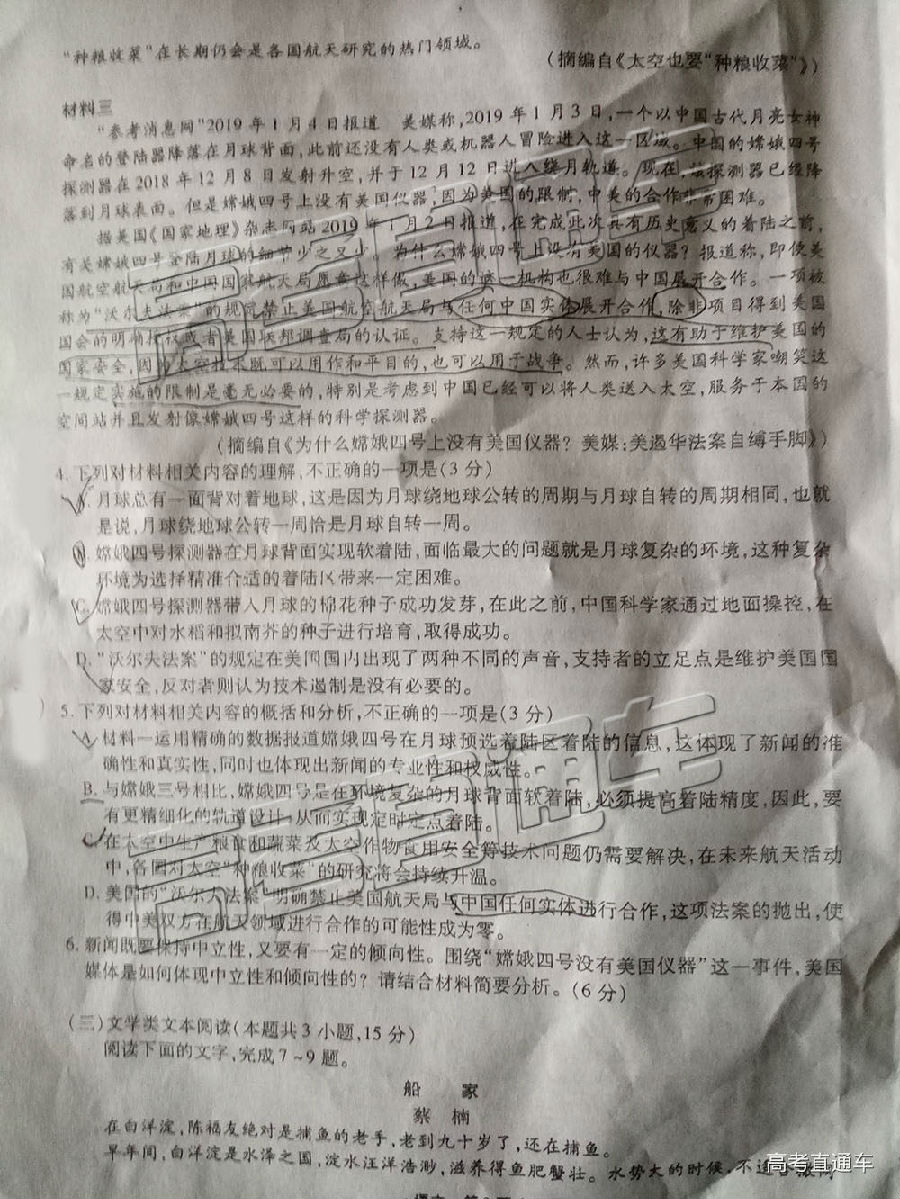 “种粮收菜”在长期仍会是各国航天研究的热门领域。
(摘编自《太空也要“种粮收菜”》)
材料三
“参考消息网”2019年1月4日报道 美媒称,2019年1月3日,一个以中国古代月亮女神
命名的登陆器降落在月球背面,此前还没有人类或机器人冒险进入这一区域。中国的嫦娥四号
探测器在2018年12月8日发射升空,并于12月12日进入绕月轨道。现在,该探测器已经降
落到月球表面。但是嫦娥四号上没有美国仪器,因为美国的限制,中美的合作非常困难。
据美国《国家地理》杂志网站2019年1月2日报道,在完成此次具有历史意义的着陆之前,
有关嫦娥四号登陆月球的细节少之又少。为什么嫦娥四号上没有美国的仪器?报道称,即使美
国航空航天局和中国国家航天局愿意这样做,美国的这一机构也很难与中国展开合作。一项被
称为“沃尔夫法案”的规定禁止美国航空航天局与任何中国实体展开合作,除非项目得到美国
国会的明确授权或者美国联邦调查局的认证。支持这一规定的人士认为,这有助于维护美国的
国家安全,因为太空技术既可以用作和平目的,也可以用于战争。然而,许多美国科学家嘲笑这
一规定实施的限制是毫无必要的,特别是考虑到中国已经可以将人类送入太空,服务于本国的
空间站并且发射像嫦娥四号这样的科学探测器。
(摘编自《为什么嫦娥四号上没有美国仪器?美媒:美遏华法案自缚手脚》)
4.下列对材料相关内容的理解,不正确的一项是(3分)
A.月球总有一面背对着地球,这是因为月球绕地球公转的周期与月球自转的周期相同,也就
是说,月球绕地球公转一周恰是月球自转一周。
B.嫦娥四号探测器在月球背面实现软着陆,面临最大的问题就是月球复杂的环境,这种复杂
环境为选择精准合适的着陆区带来一定困难。
C.嫦娥四号探测器带入月球的棉花种子成功发芽,在此之前,中国科学家通过地面操控,在
太空中对水稻和拟南芥的种子进行培育,取得成功。
D.“沃尔夫法案”的规定在美国国内出现了两种不同的声音,支持者的立足点是维护美国国
家安全,反对者则认为技术遏制是没有必要的。
5.下列对材料相关内容的概括和分析,不正确的一项是(3分)
A.材料一运用精确的数据报道嫦娥四号在月球预选着陆区着陆的信息,这体现了新闻的准
确性和真实性,同时也体现出新闻的专业性和权威性。
B.与嫦娥三号相比,嫦娥四号是在环境复杂的月球背面软着陆,必须提高着陆精度,因此,要
有更精细化的轨道设计,从而实现定时定点着陆。
C.在太空中生产粮食和蔬菜及太空作物食用安全等技术问题仍需要解决,在未来航天活动
中,各国对太空“种粮收菜”的研究将会持续升温。
D.美国的“沃尔夫法案”明确禁止美国航天局与中国任何实体进行合作,这项法案的抛出,使
得中美双方在航天领域进行合作的可能性成为零。
6.新闻既要保持中立性,又要有一定的倾向性。围绕“嫦娥四号没有美国仪器”这一事件,美国
媒体是如何体现中立性和倾向性的?请结合材料简要分析。(6分)
(三)文学类文本阅读(本题共3小题,15分)
阅读下面的文字,完成7~9题。
船 家
蔡 楠
在白洋淀,陈福友绝对是捕鱼的老手,老到九十岁了,还在捕鱼。
早年间,白洋淀是水泽之国,淀水汪洋浩渺,滋养得鱼肥蟹壮。水势大的时候,不
高考直通车